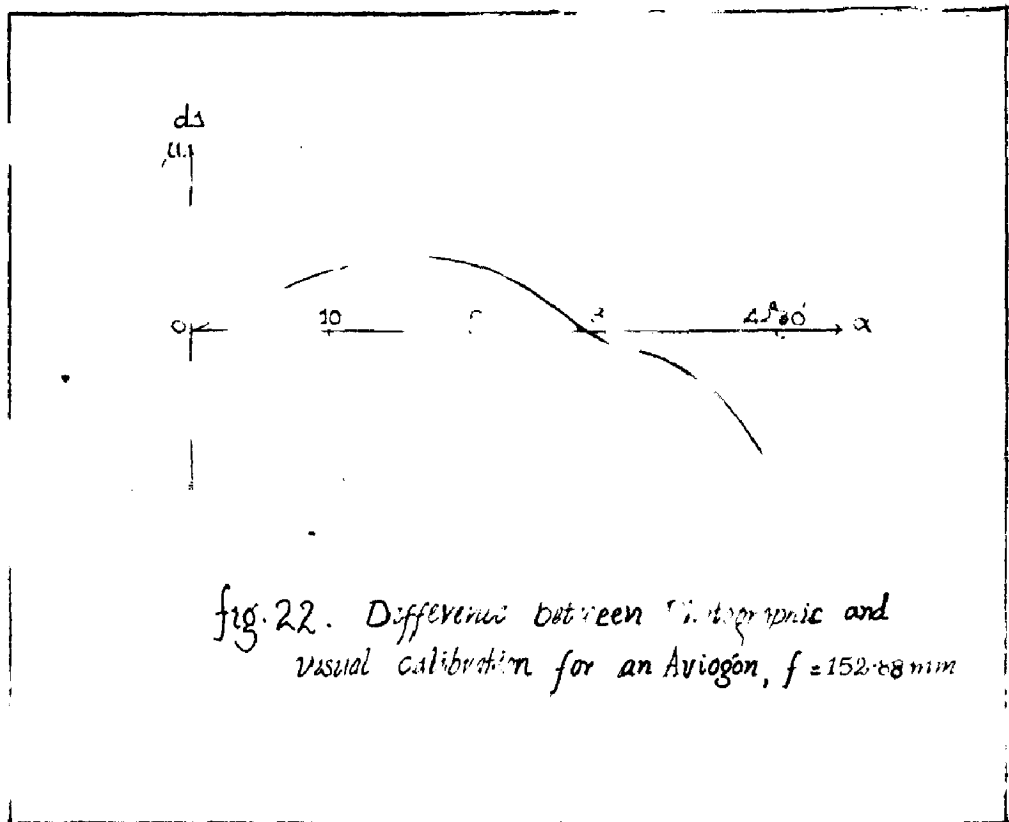 ds
μ
0 10 α
fig. 22. Difference between and
visual calibration for an Aviogon, f = 152.88 mm